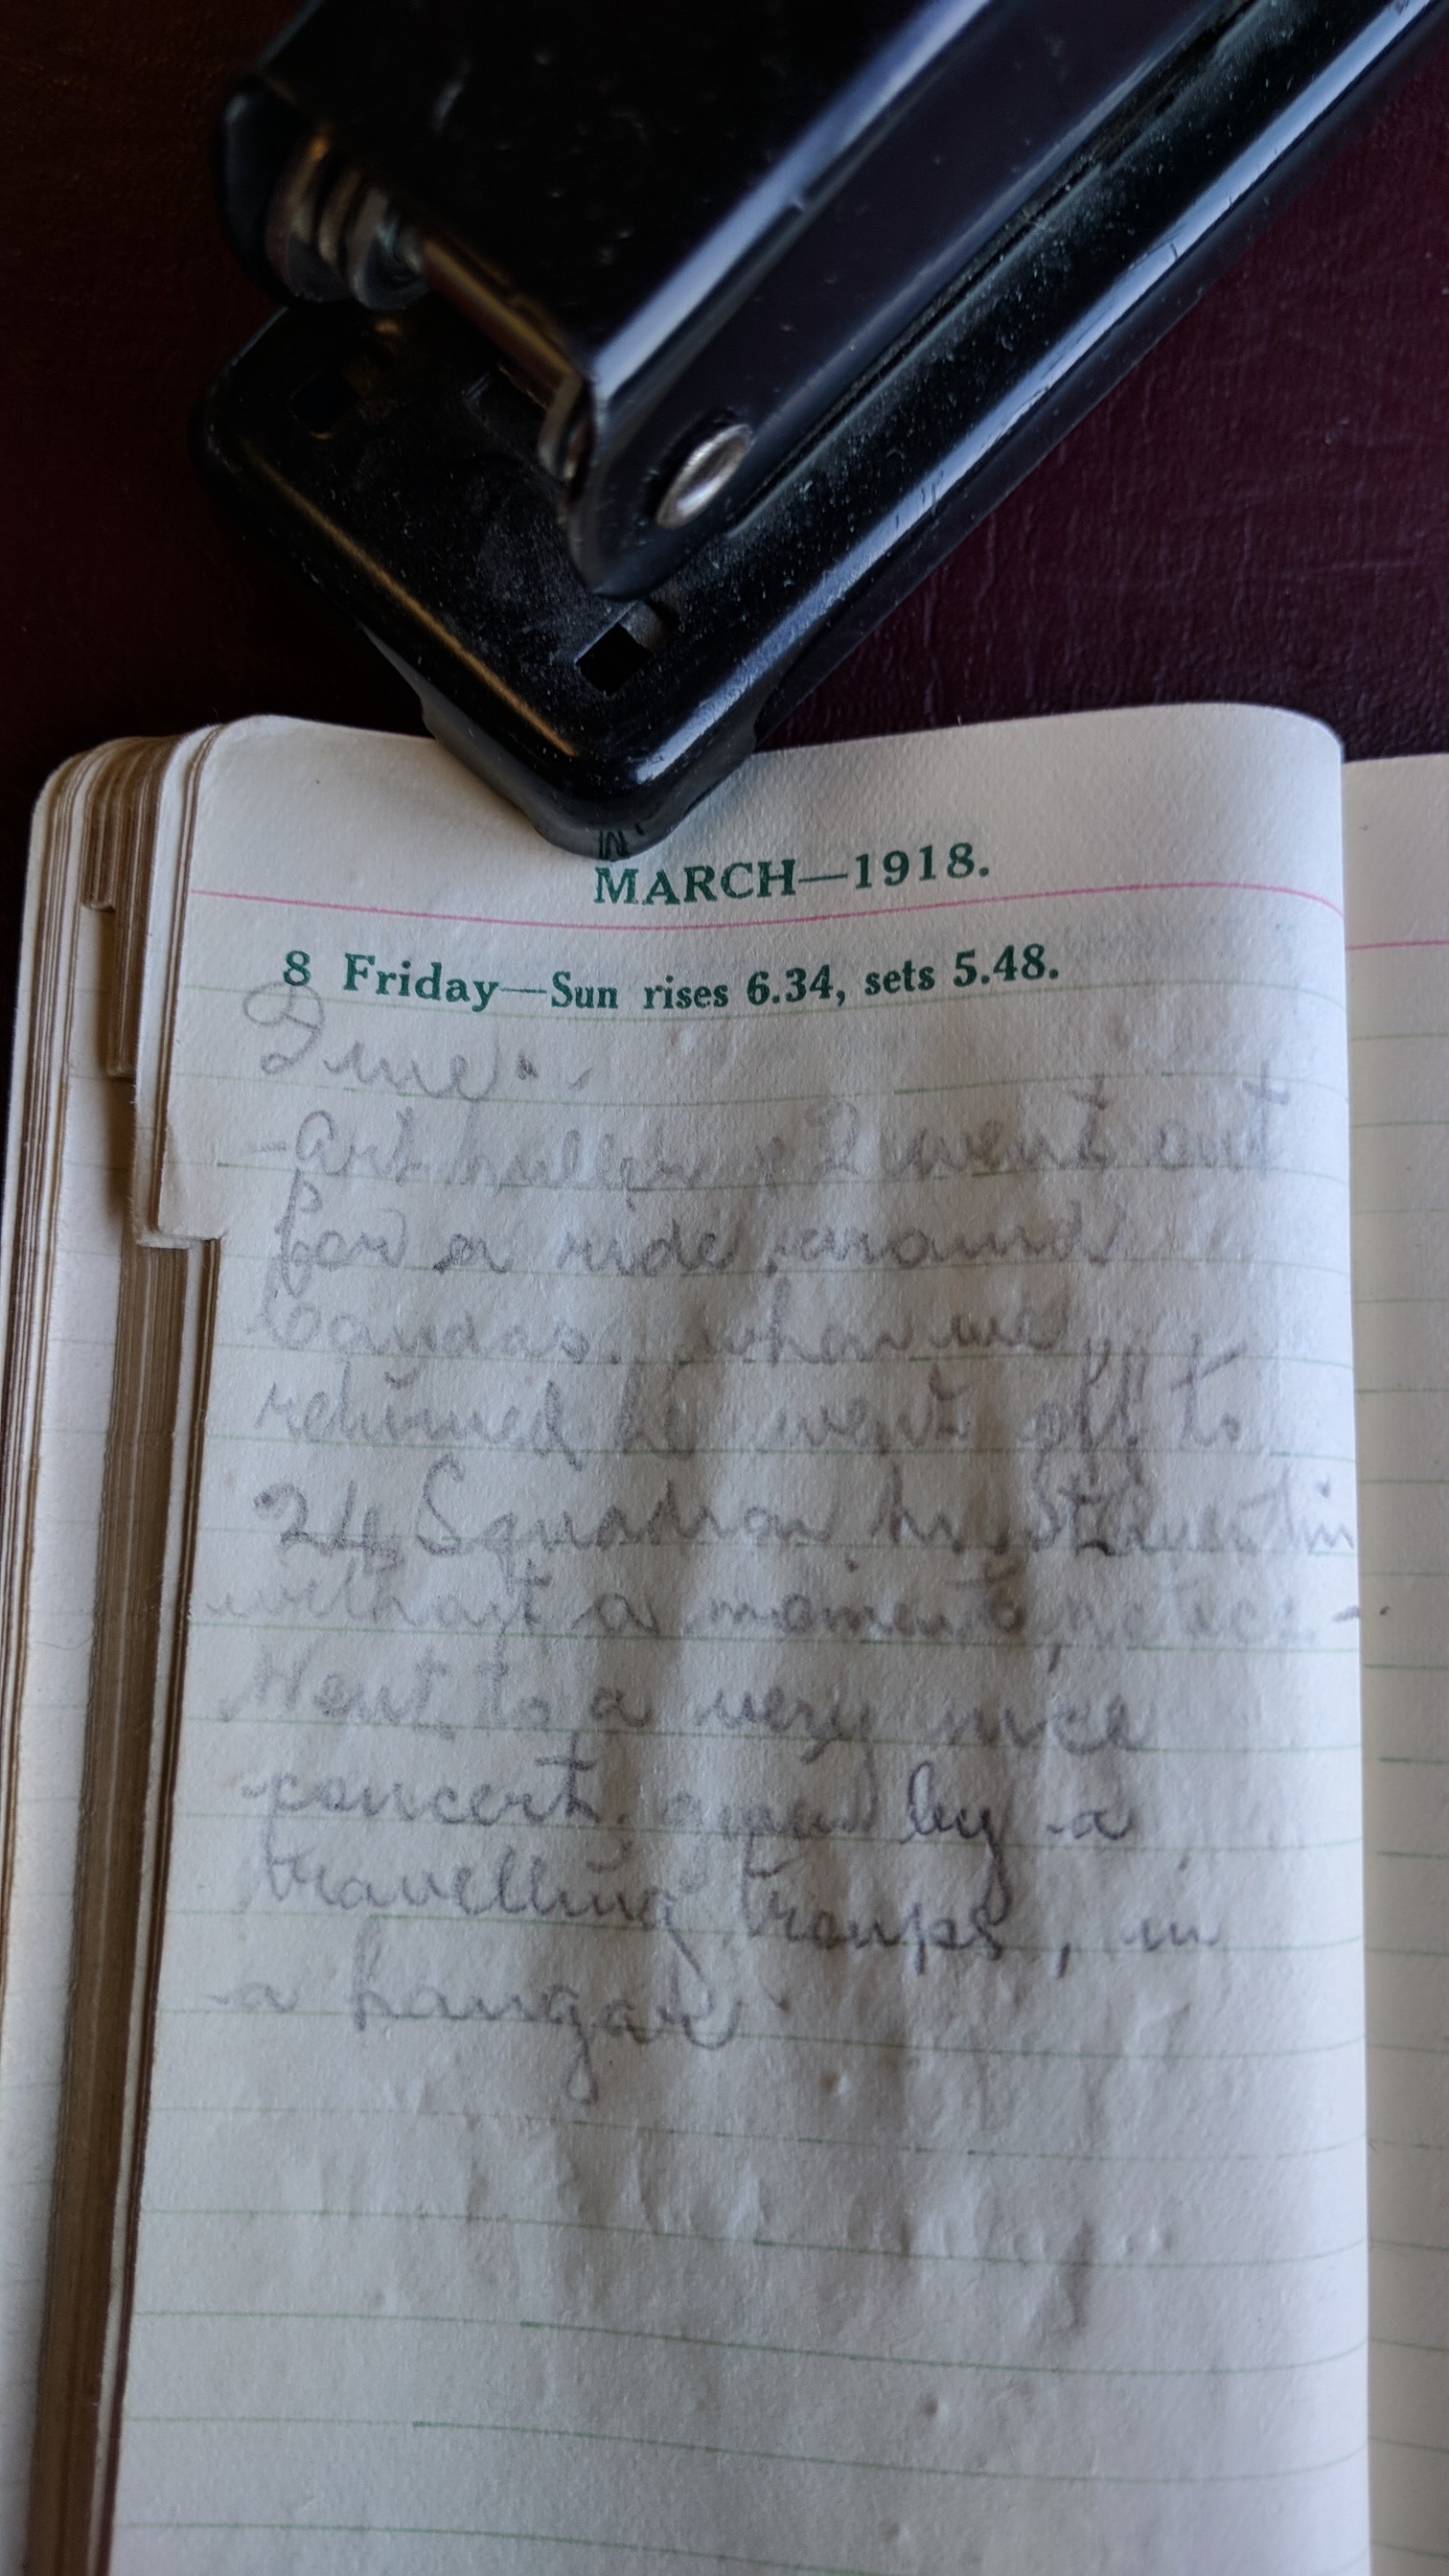 MARCH—1918.
8 Friday—Sun rises 6.34, sets 5.48.
Fine.
Art & I went out
for a ride around
Candas. when we
returned he went off to
24 Squadron
without a moments notice -
Went to a very nice
concert, given by a
travelling troupe, in
a hangar